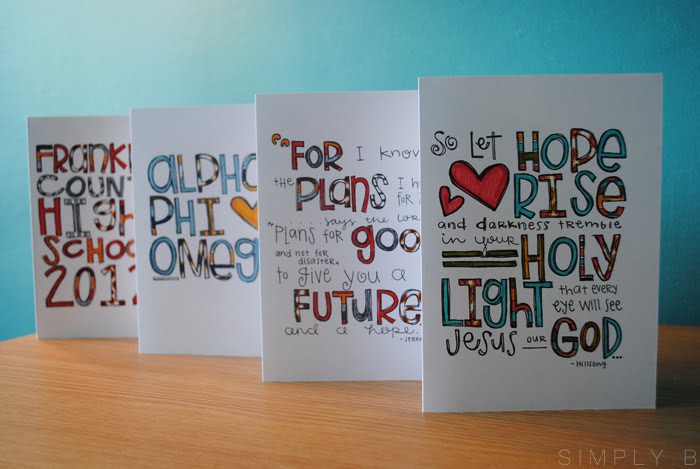 FRANKL
COUNT
HIGH
SCHOO
2012
ALPHA
PHI
OMEG
"FOR I know
THE PLANS I h
for
.....says the LOR
"Plans for goo
and not for
disaster,
to give you a
FUTURE
and a hope.
-JERE
SO LET HOPE
RISE
and darkness tremble
in your HOLY
LIGHT that every
eye will see
Jesus our GOD...
-Hillsong
SIMPLY B